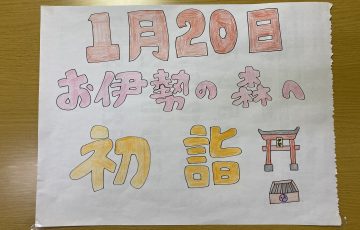 1月20日
お伊勢の森へ
初詣